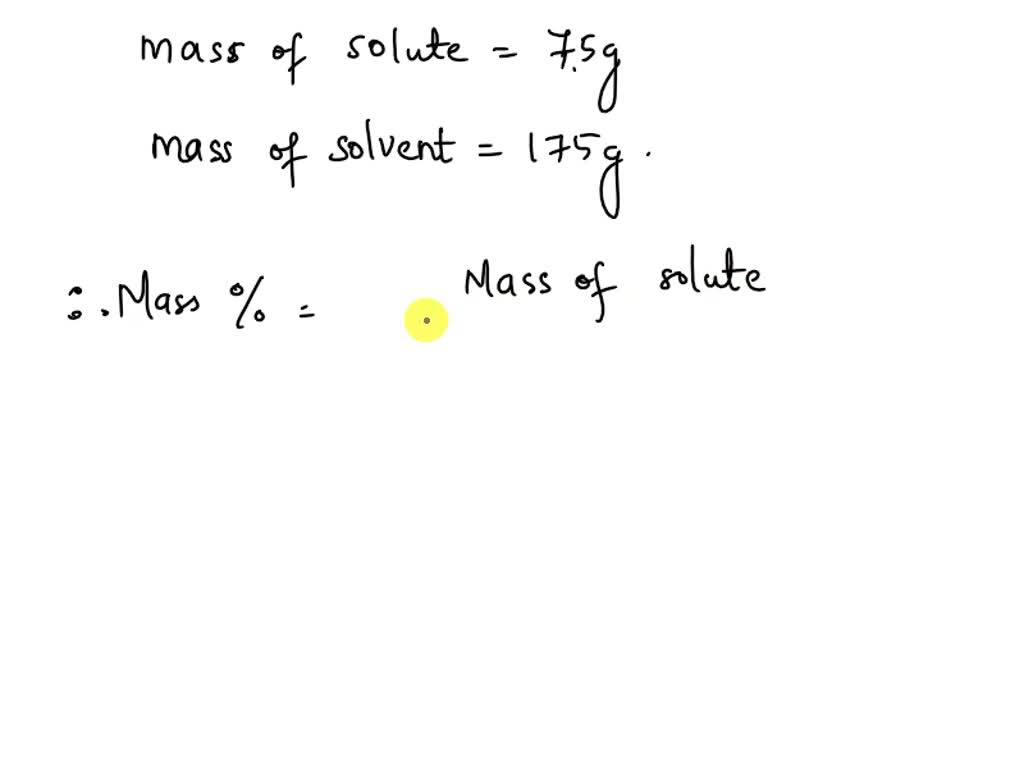 mass of solute = 7.5g
mass of solvent = 175g.
∴ Mass % = Mass of solute